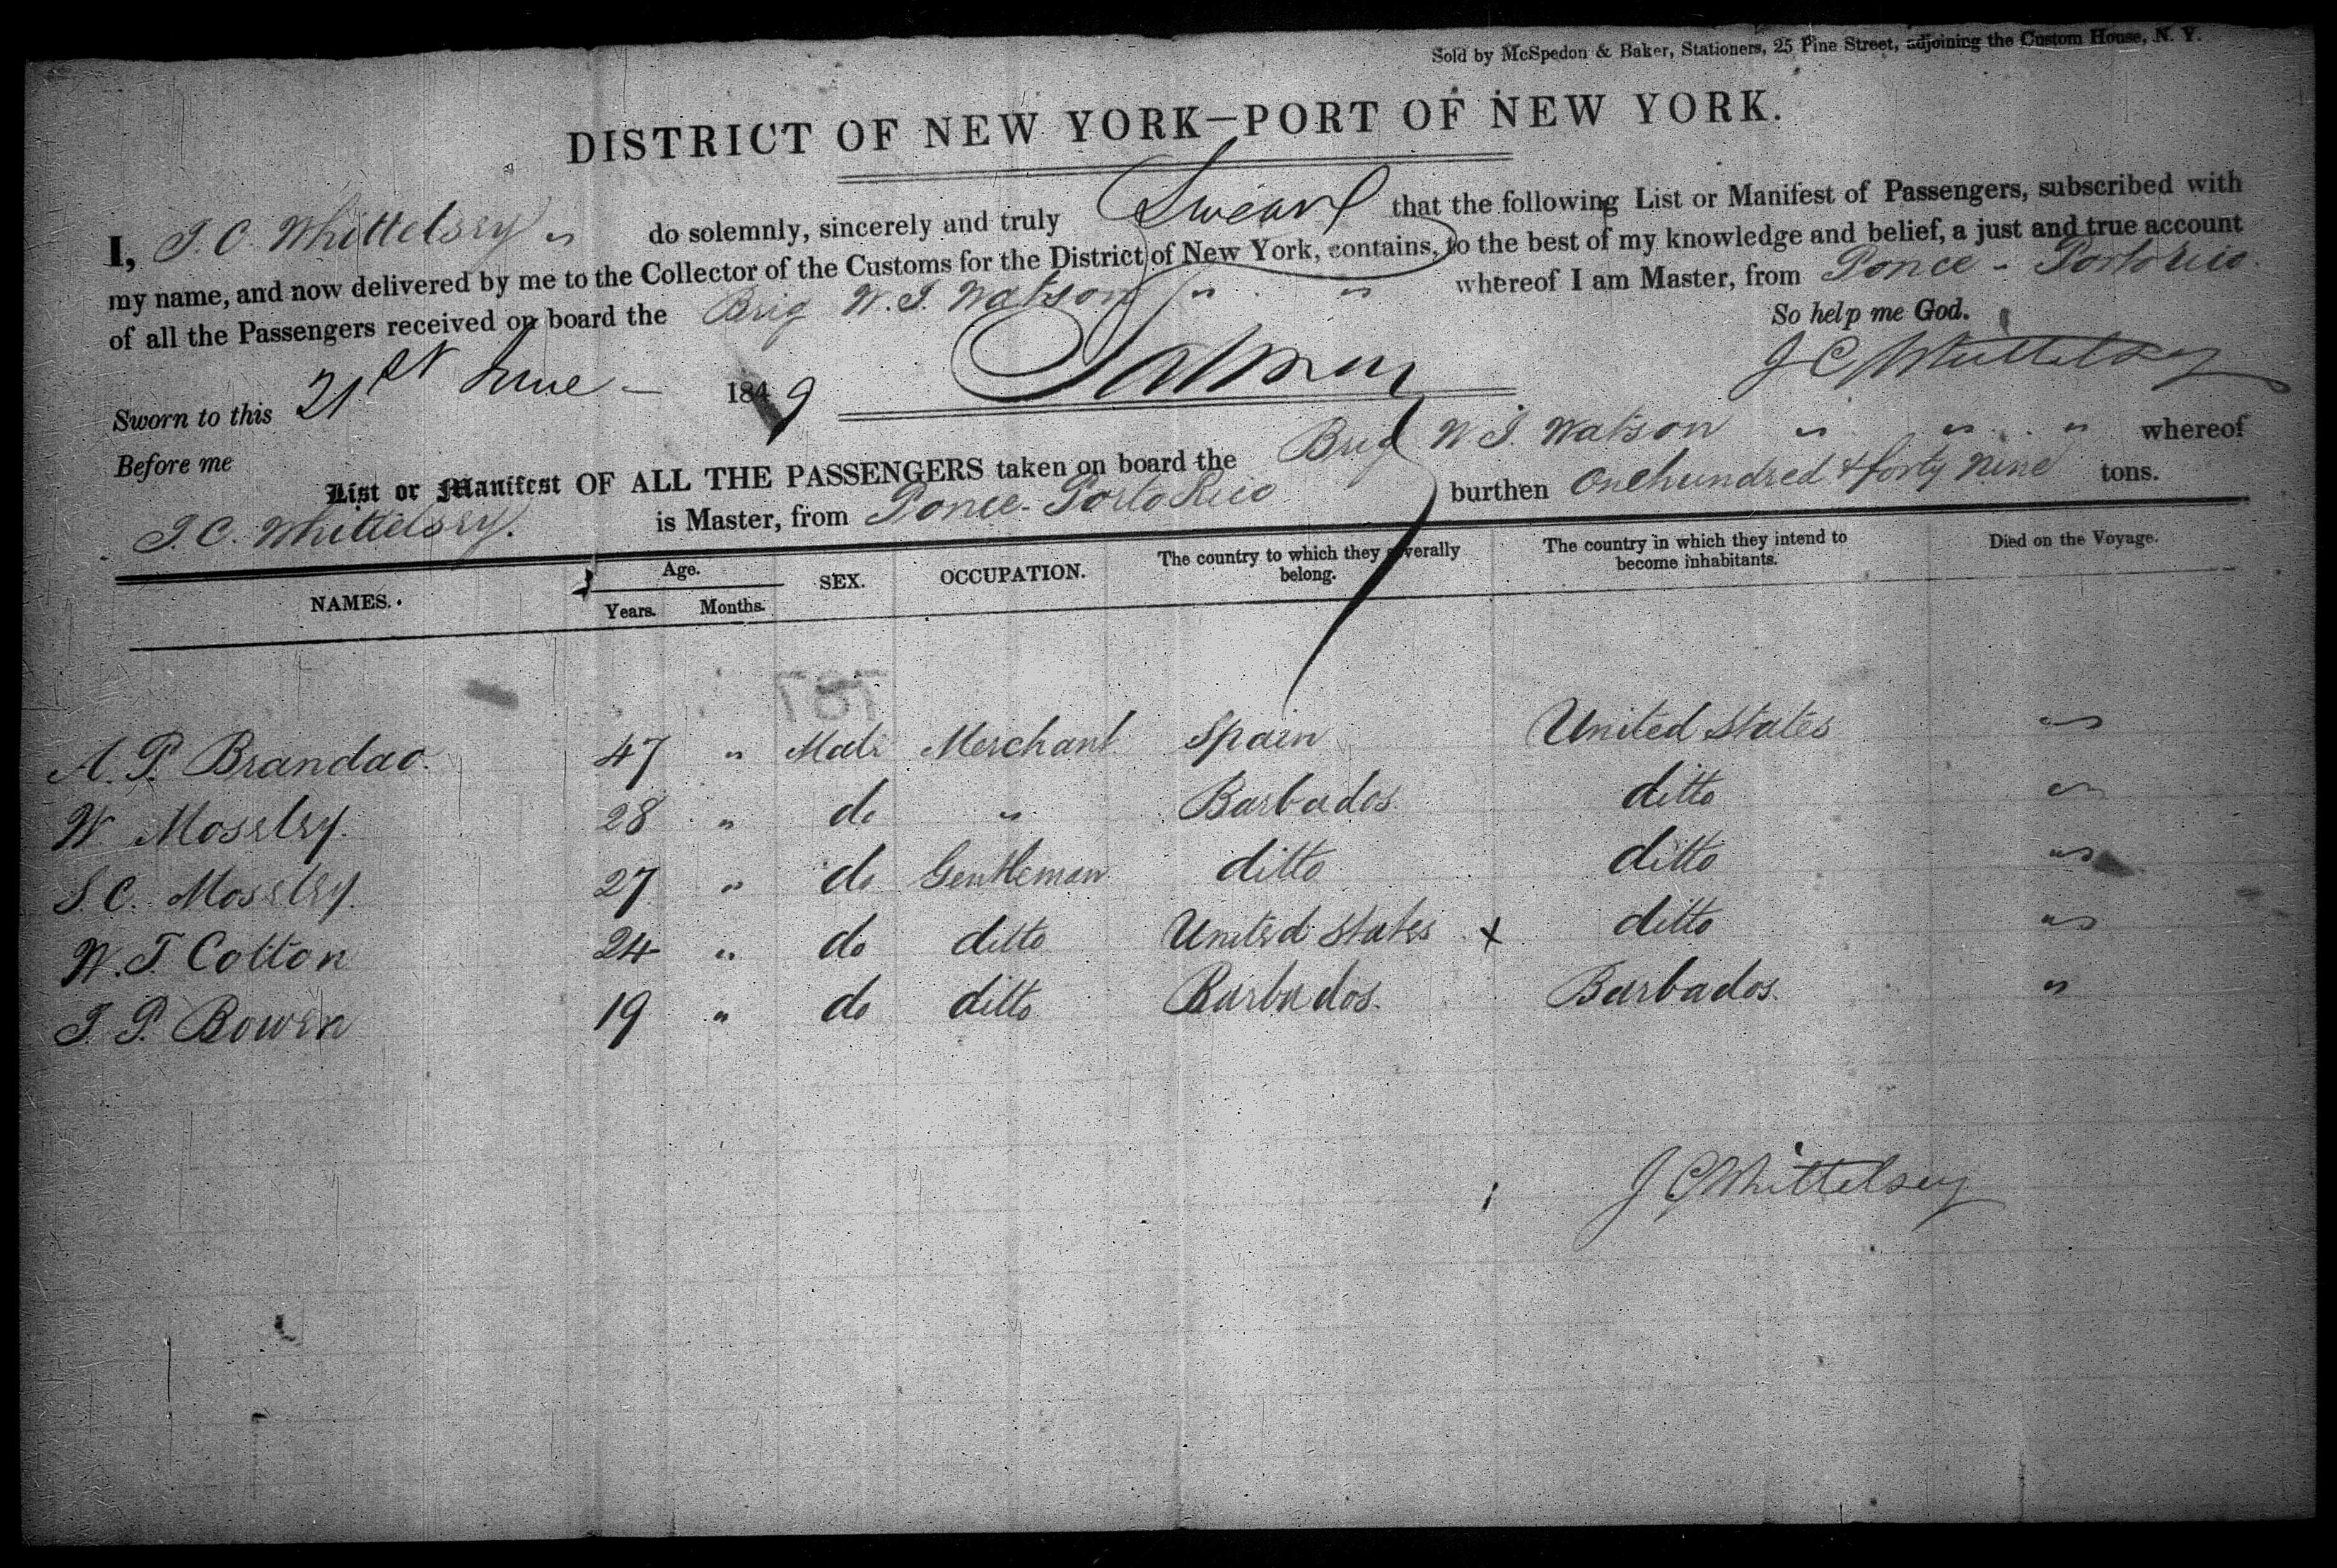 Sold by McSpedon & Baker, Stationers, 25 Pine Street, adjoining the Custom House, N. Y.
DISTRICT OF NEW YORK—PORT OF NEW YORK.
I, J. C. Whittelsey " do solemnly, sincerely and truly Swear that the following List or Manifest of Passengers, subscribed with
my name, and now delivered by me to the Collector of the Customs for the District of New York, contains, to the best of my knowledge and belief, a just and true account
of all the Passengers received on board the Brig W. J. Watson " " whereof I am Master, from Ponce - Porto Rico.
So help me God.
Sworn to this 21st June 1849 J C Whittelsey
Before me
List or Manifest OF ALL THE PASSENGERS taken on board the Brig W J. Watson " " " whereof
J. C. Whittelsey. is Master, from Ponce. Porto Rico burthen One hundred & forty nine tons.
NAMES. Age. Years. Months. SEX. OCCUPATION. The country to which they severally belong. The country in which they intend to become inhabitants. Died on the Voyage.
787
A. P. Brandao. 47 " Male Merchant Spain United States "
W Mosseley. 28 " do " Barbados. ditto "
S. C. Mosseley. 27 " do Gentleman ditto ditto "
W. T. Cotton 24 " do ditto United States x ditto "
J. P. Bowen 19 " do ditto Barbados. Barbados. "
J C Whittelsey